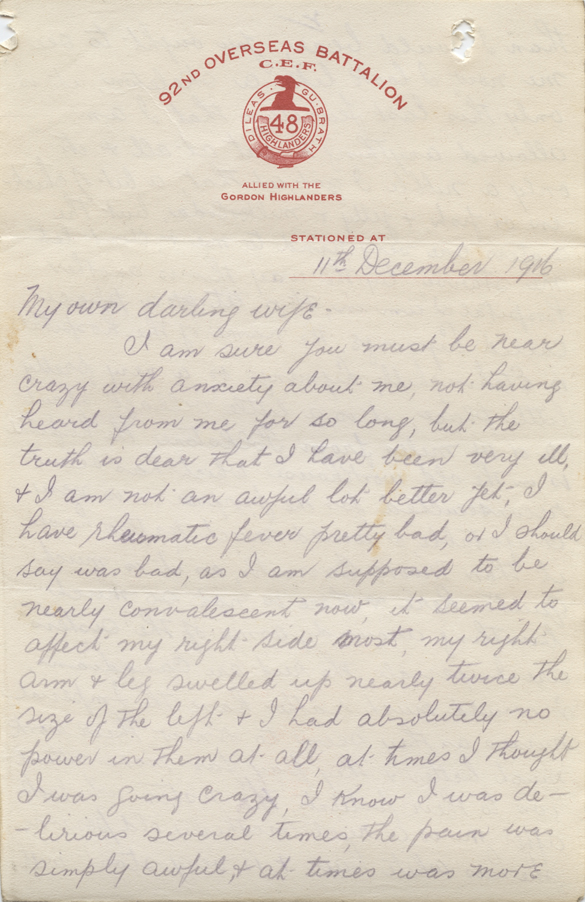 92ND OVERSEAS BATTALION
C.E.F.
DILEAS · GU · BRATH
48
HIGHLANDERS
ALLIED WITH THE
GORDON HIGHLANDERS
STATIONED AT
11th December 1916
My own darling wife -
I am sure you must be near
crazy with anxiety about me, not having
heard from me for so long, but the
truth is dear that I have been very ill,
& I am not an awful lot better yet, I
have rheumatic fever pretty bad, or I should
say was bad, as I am supposed to be
nearly convalescent now, it seemed to
affect my right side most, my right
arm & leg swelled up nearly twice the
size of the left & I had absolutely no
power in them at all, at times I thought
I was going crazy, I know I was de-
-lirious several times, the pain was
simply awful, & at times was more